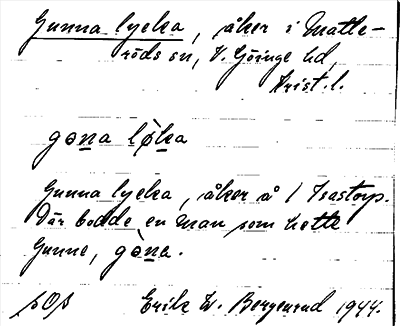 Gunna lycka, åker i Matte-
röds sn, V. Göinge hd,
Krist. l.
gøna løka
Gunna lycka, åker å 1 Isastorp.
Där bodde en man som hette
Gunne, gøna.
Erik W. Bergenrud 1944.